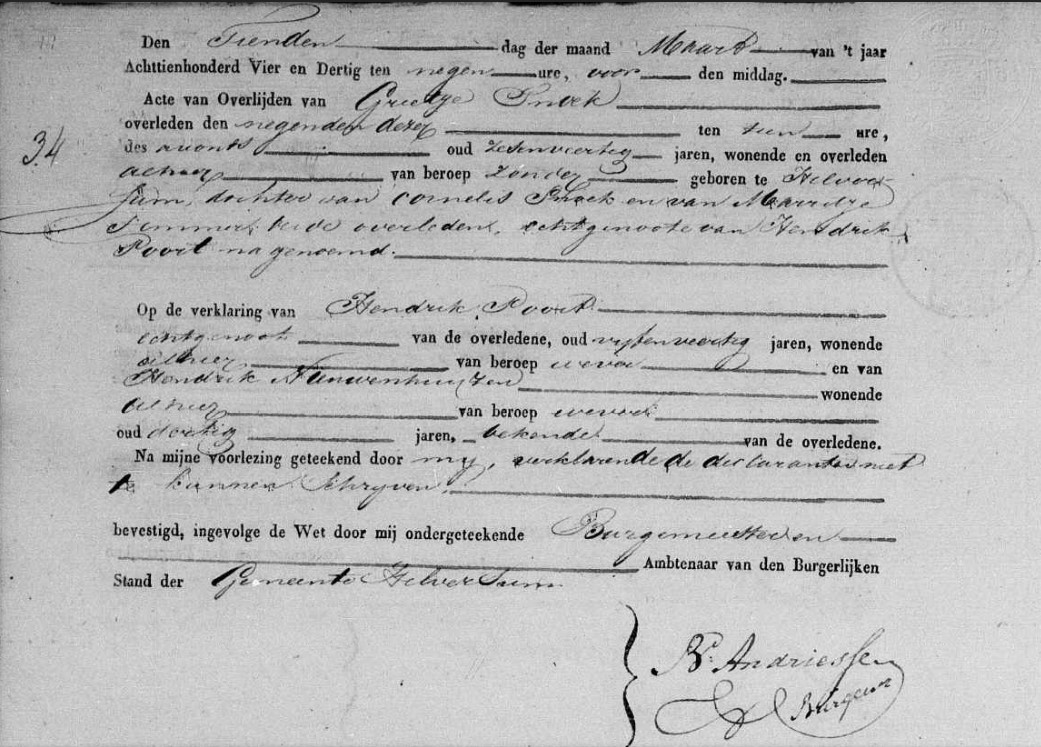 Den Tienden dag der maand Maart van 't jaar
Achttienhonderd Vier en Dertig ten negen ure, voor den middag.
Acte van Overlijden van Grietje Snoek
34
overleden den negenden dezer ten tien ure,
des avonds oud zesenveertig jaren, wonende en overleden
alhier van beroep Zonder geboren te Hilver-
sum, dochter van Cornelis Snoek en van Marretje
beide overleden, echtgenoote van Hendrik
Poort na genoemd.
Op de verklaring van Hendrik Poort
echtgenoot van de overledene, oud vijfenveertig jaren, wonende
alhier van beroep wever en van
Hendrik Nieuwenhuijzen wonende
alhier van beroep wever
oud dertig jaren, bekende van de overledene.
Na mijne voorlezing geteekend door mij, verklarende de declaranten niet
te kunnen schrijven.
bevestigd, ingevolge de Wet door mij ondergeteekende Burgemeester en
Ambtenaar van den Burgerlijken
Stand der Gemeente Hilversum
Andriessen
Burgem